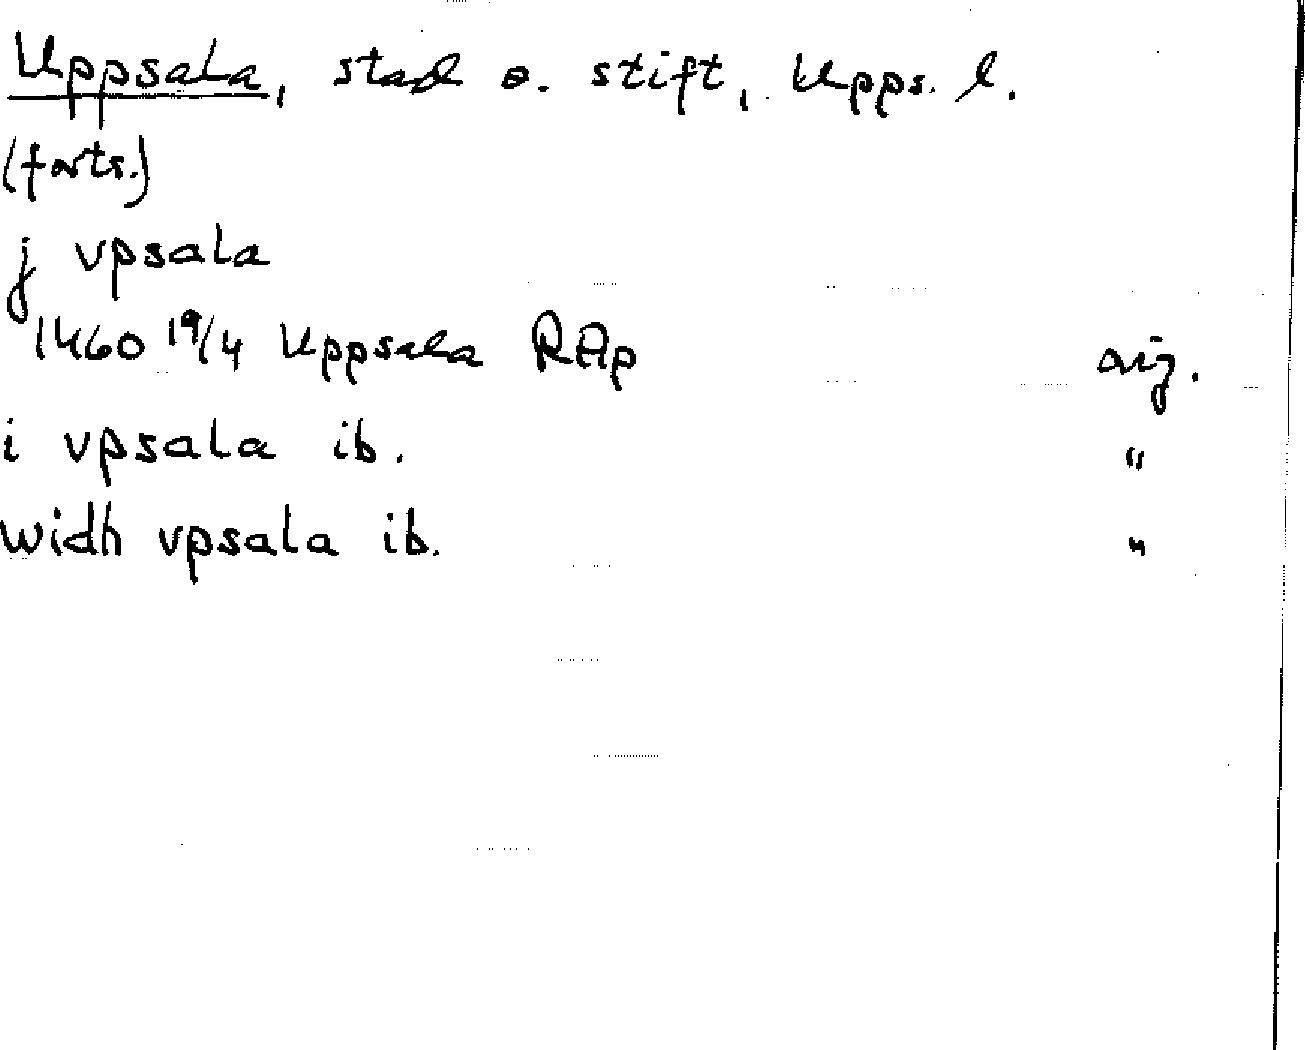 Uppsala, stad o. stift, Upps. l.
(forts.)
j vpsala
1460 19/4 Uppsala RAp orig.
i vpsala ib. "
widh vpsala ib. "